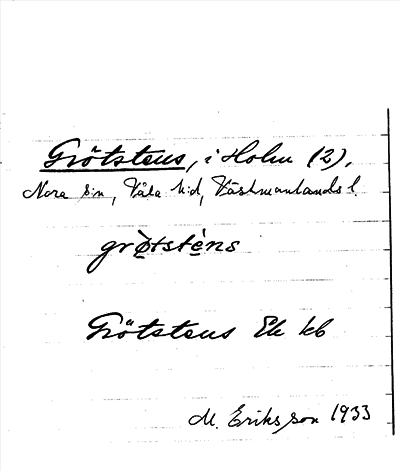 Grötstens, i Holm (2),
Nora sn, Våla hd, Västmanlands l.
grö̀tsténs
Grötstens Ek kb
M. Eriksson 1933